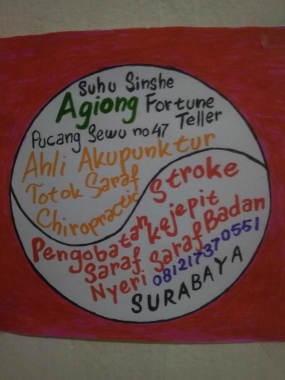 Suhu Sinshe
Agiong Fortune Teller
Pucang Sewu no 47
Ahli Akupunktur
Totok Saraf
Chiropractic
Stroke
Pengobatan
Saraf Kejepit
Nyeri Saraf Badan
081217370551
SURABAYA